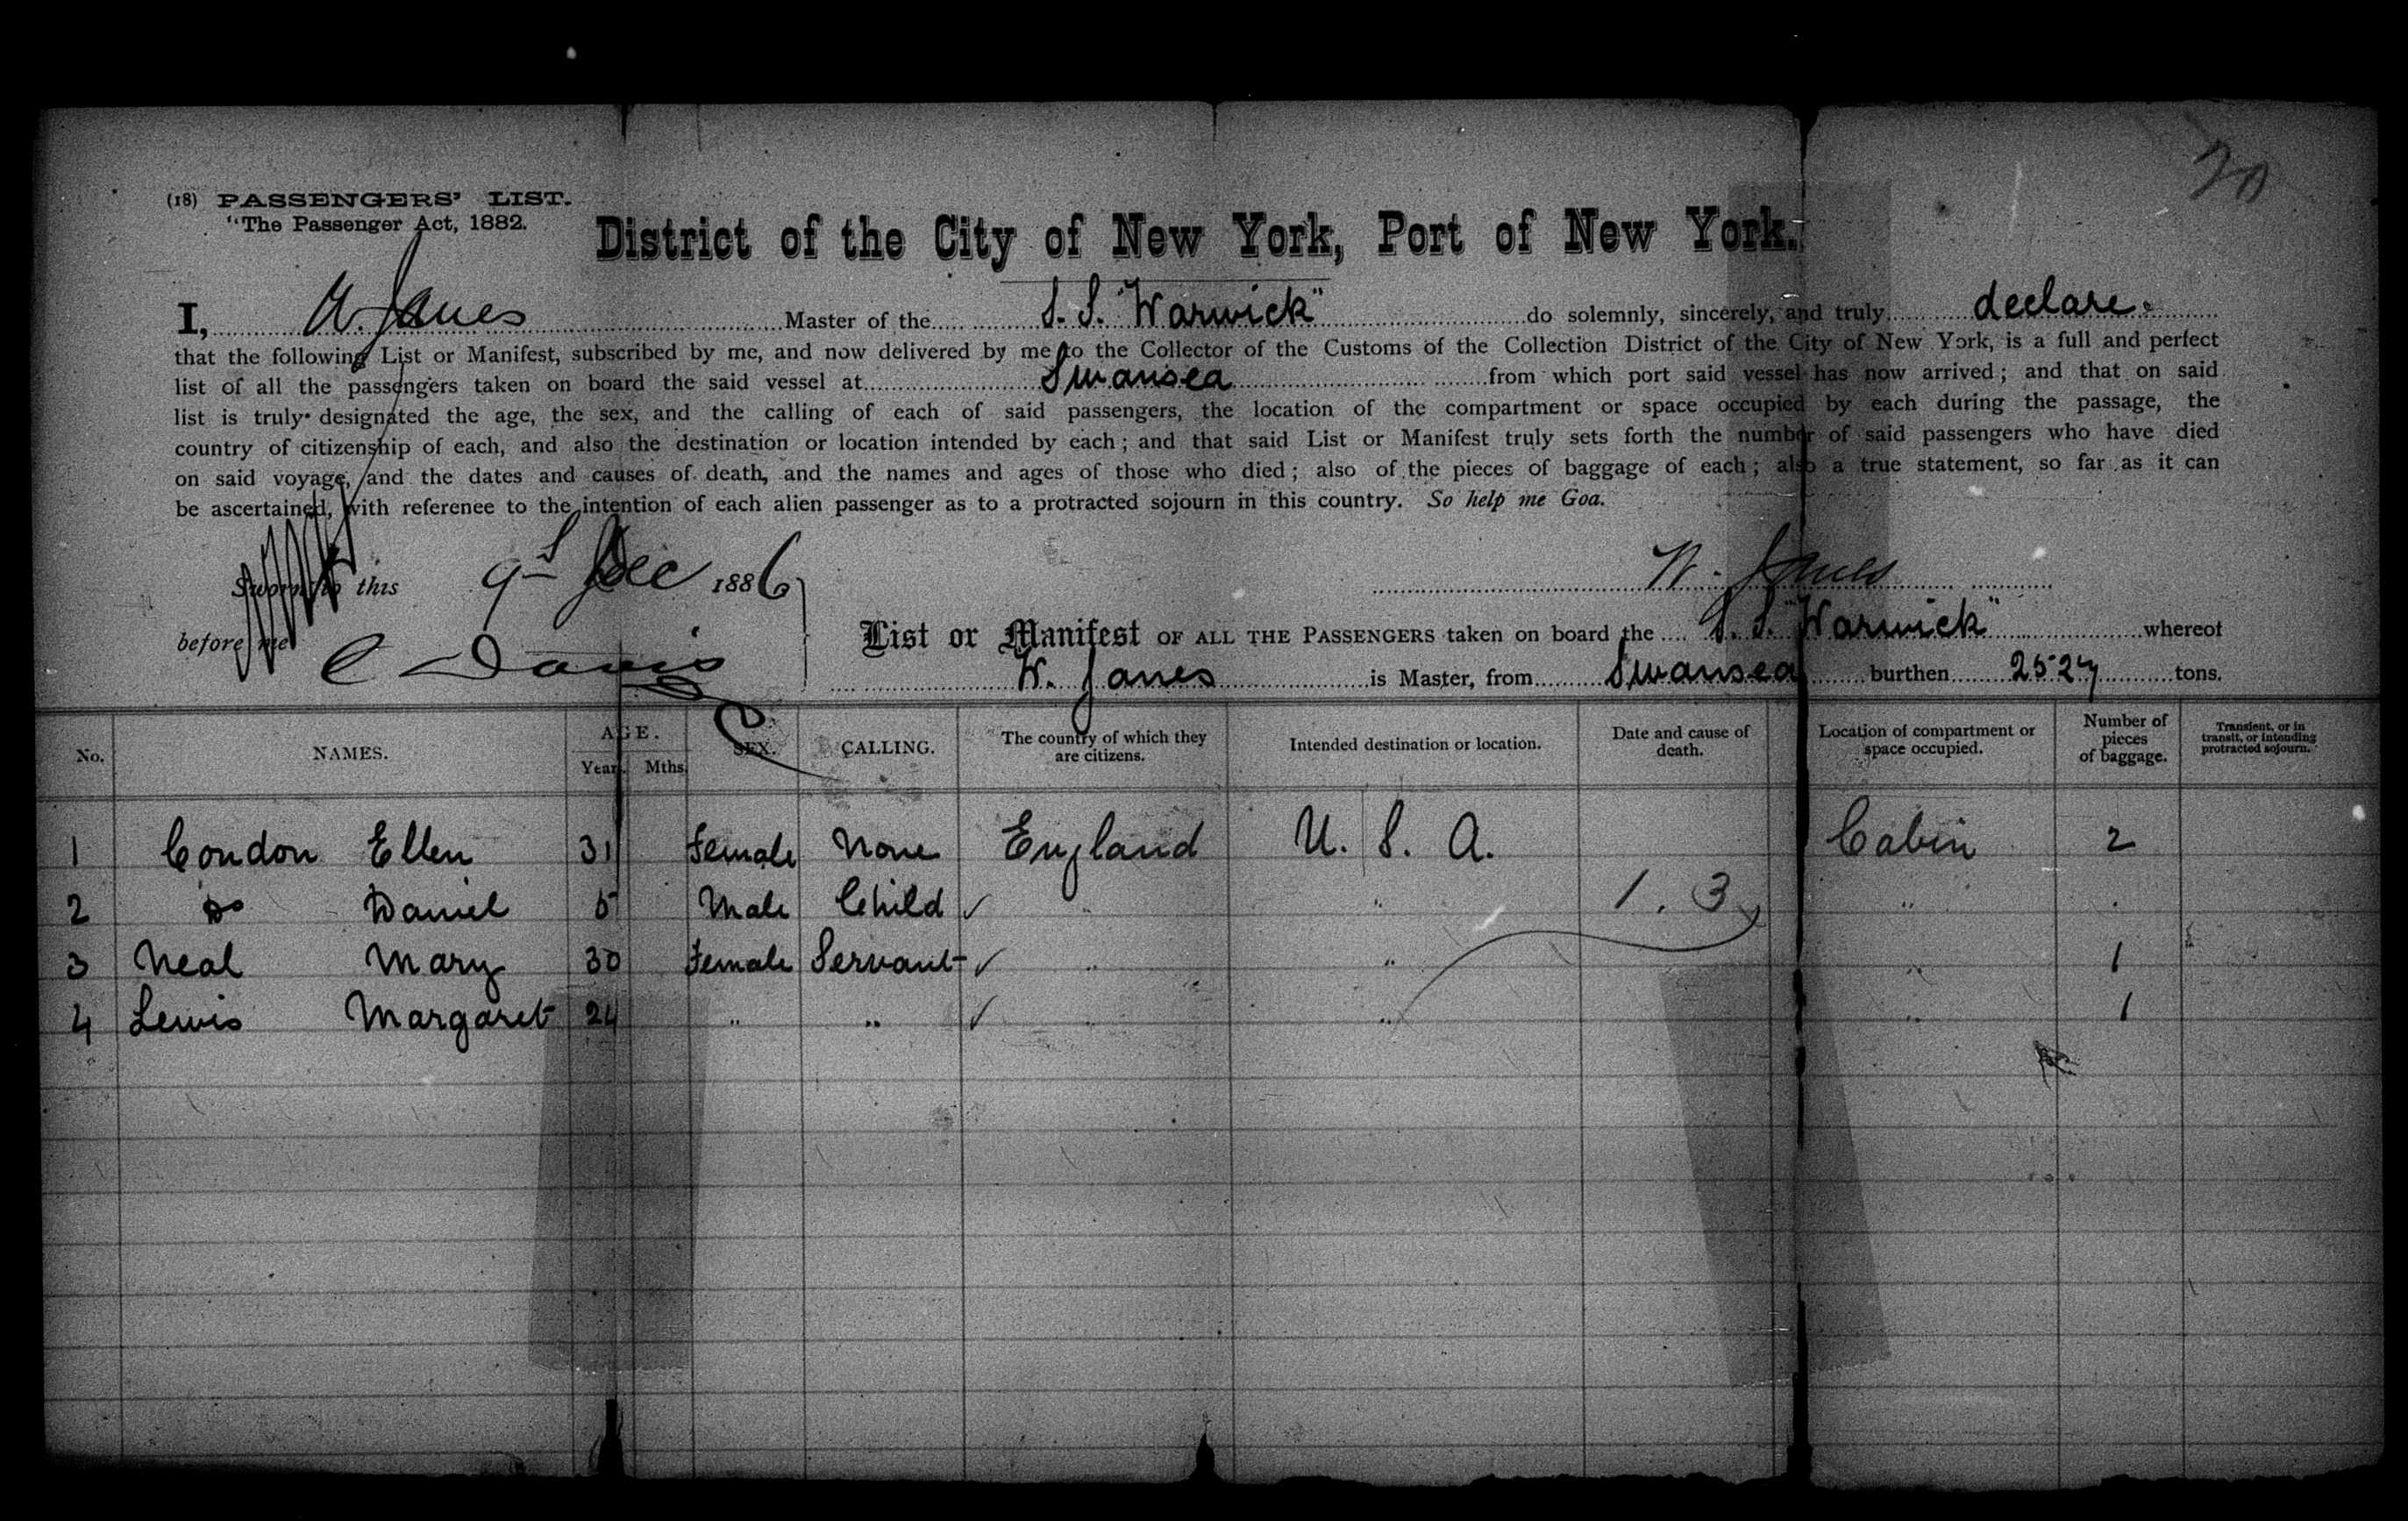 20
(18) PASSENGERS' LIST.
"The Passenger Act, 1882.
District of the City of New York, Port of New York.
I, W. Janes Master of the S. S. "Warwick" do solemnly, sincerely, and truly declare
that the following List or Manifest, subscribed by me, and now delivered by me to the Collector of the Customs of the Collection District of the City of New York, is a full and perfect
list of all the passengers taken on board the said vessel at Swansea from which port said vessel has now arrived; and that on said
list is truly designated the age, the sex, and the calling of each of said passengers, the location of the compartment or space occupied by each during the passage, the
country of citizenship of each, and also the destination or location intended by each; and that said List or Manifest truly sets forth the number of said passengers who have died
on said voyage, and the dates and causes of death, and the names and ages of those who died; also of the pieces of baggage of each; also a true statement, so far as it can
be ascertained, with referenee to the intention of each alien passenger as to a protracted sojourn in this country. So help me Goa.
Sworn to this 9th Dec 1886
W. Janes
before me C Davis
List or Manifest OF ALL THE PASSENGERS taken on board the S. S. "Warwick" whereof
W. Janes is Master, from Swansea burthen 2527 tons.
No. NAMES. AGE. Years Mths. SEX. CALLING. The country of which they are citizens. Intended destination or location. Date and cause of death. Location of compartment or space occupied. Number of pieces of baggage. Transient, or in transit, or intending protracted sojourn.
1 Condon Ellen 31 Female None England U. S. A. Cabin 2
2 Do Daniel 5 Male Child ✓ " " 1. 3 "
3 Neal Mary 30 Female Servant ✓ " " " 1
4 Lewis Margaret 24 " " ✓ " " " 1